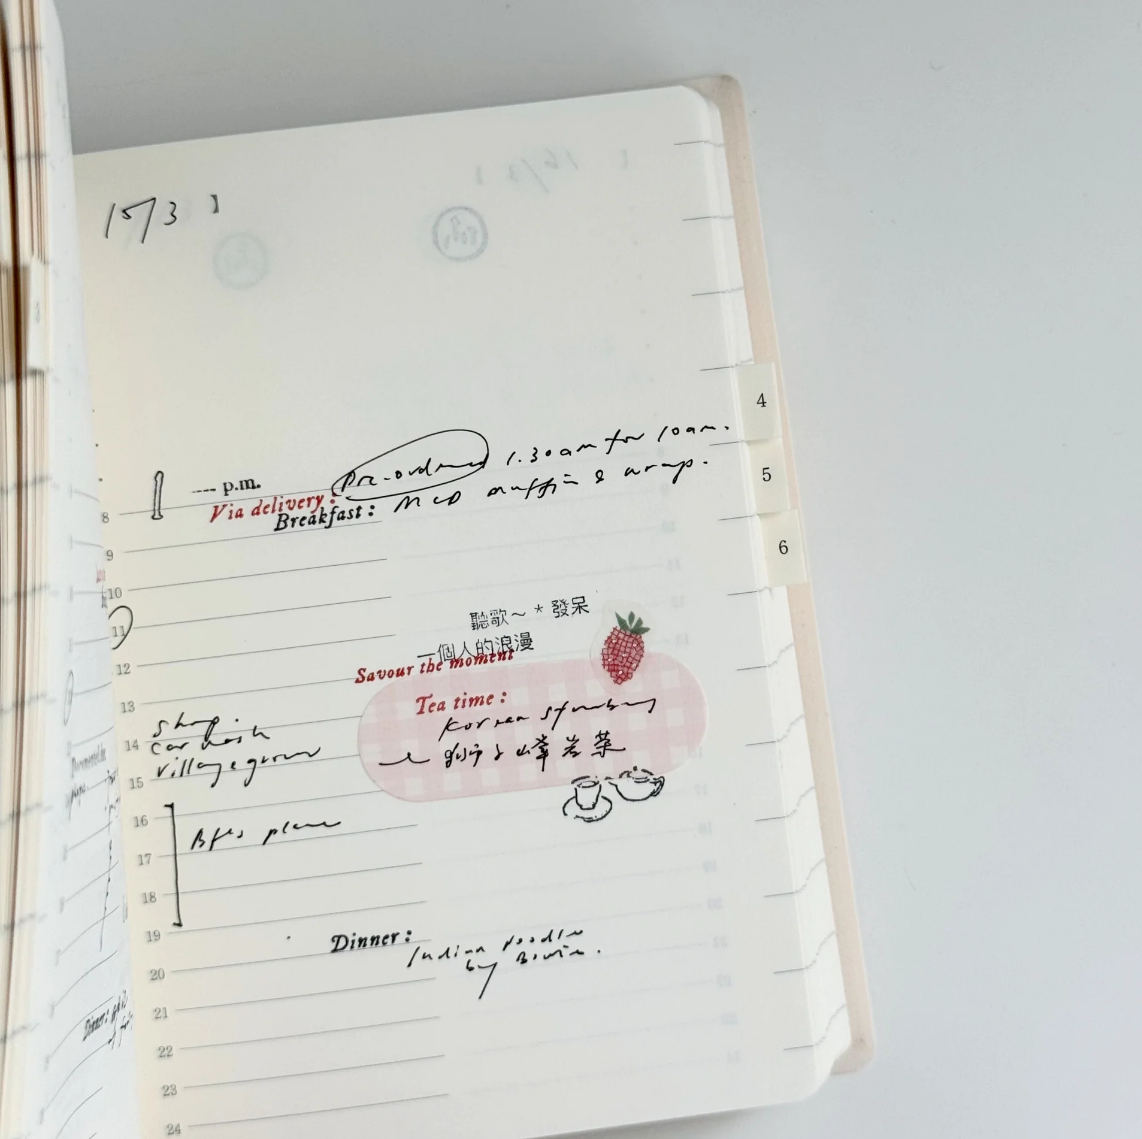 15/3 】
---- p.m.
Via delivery :
Pre-ordered 1.30am for 10am.
Breakfast : McD muffin & wrap.
聽歌～ * 發呆
一個人的浪漫
Savour the moment
Tea time :
Korean strawberry
Shop.
car wash
village grocer
Bf's place
Dinner :
Indian Noodle
by
8
9
10
11
12
13
14
15
16
17
18
19
20
21
22
23
24
4
5
6